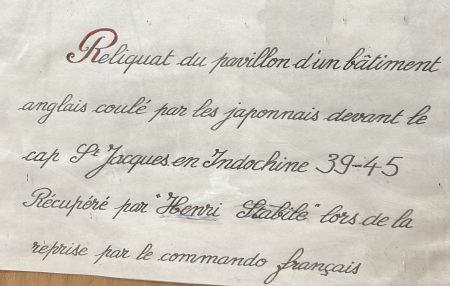 Reliquat du pavillon d'un bâtiment
anglais coulé par les japonnais devant le
cap St Jacques en Indochine 39-45
Récupéré par "Henri Stabile" lors de la
reprise par le commando français